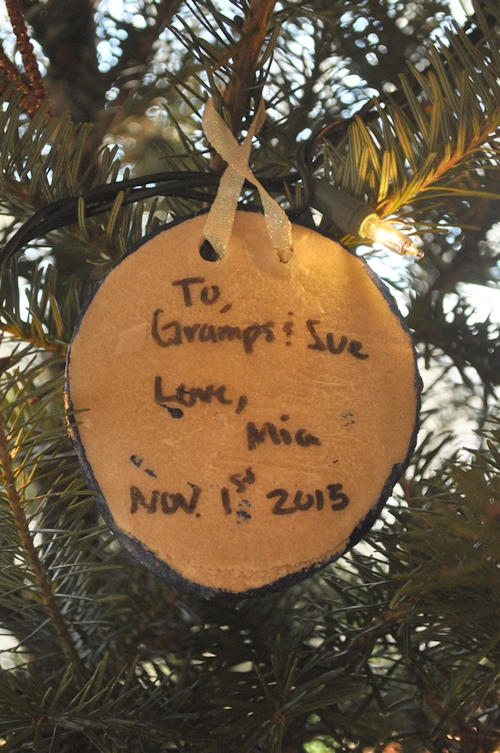 To,
Gramps & Sue
Love,
Mia
Nov. 1st 2015